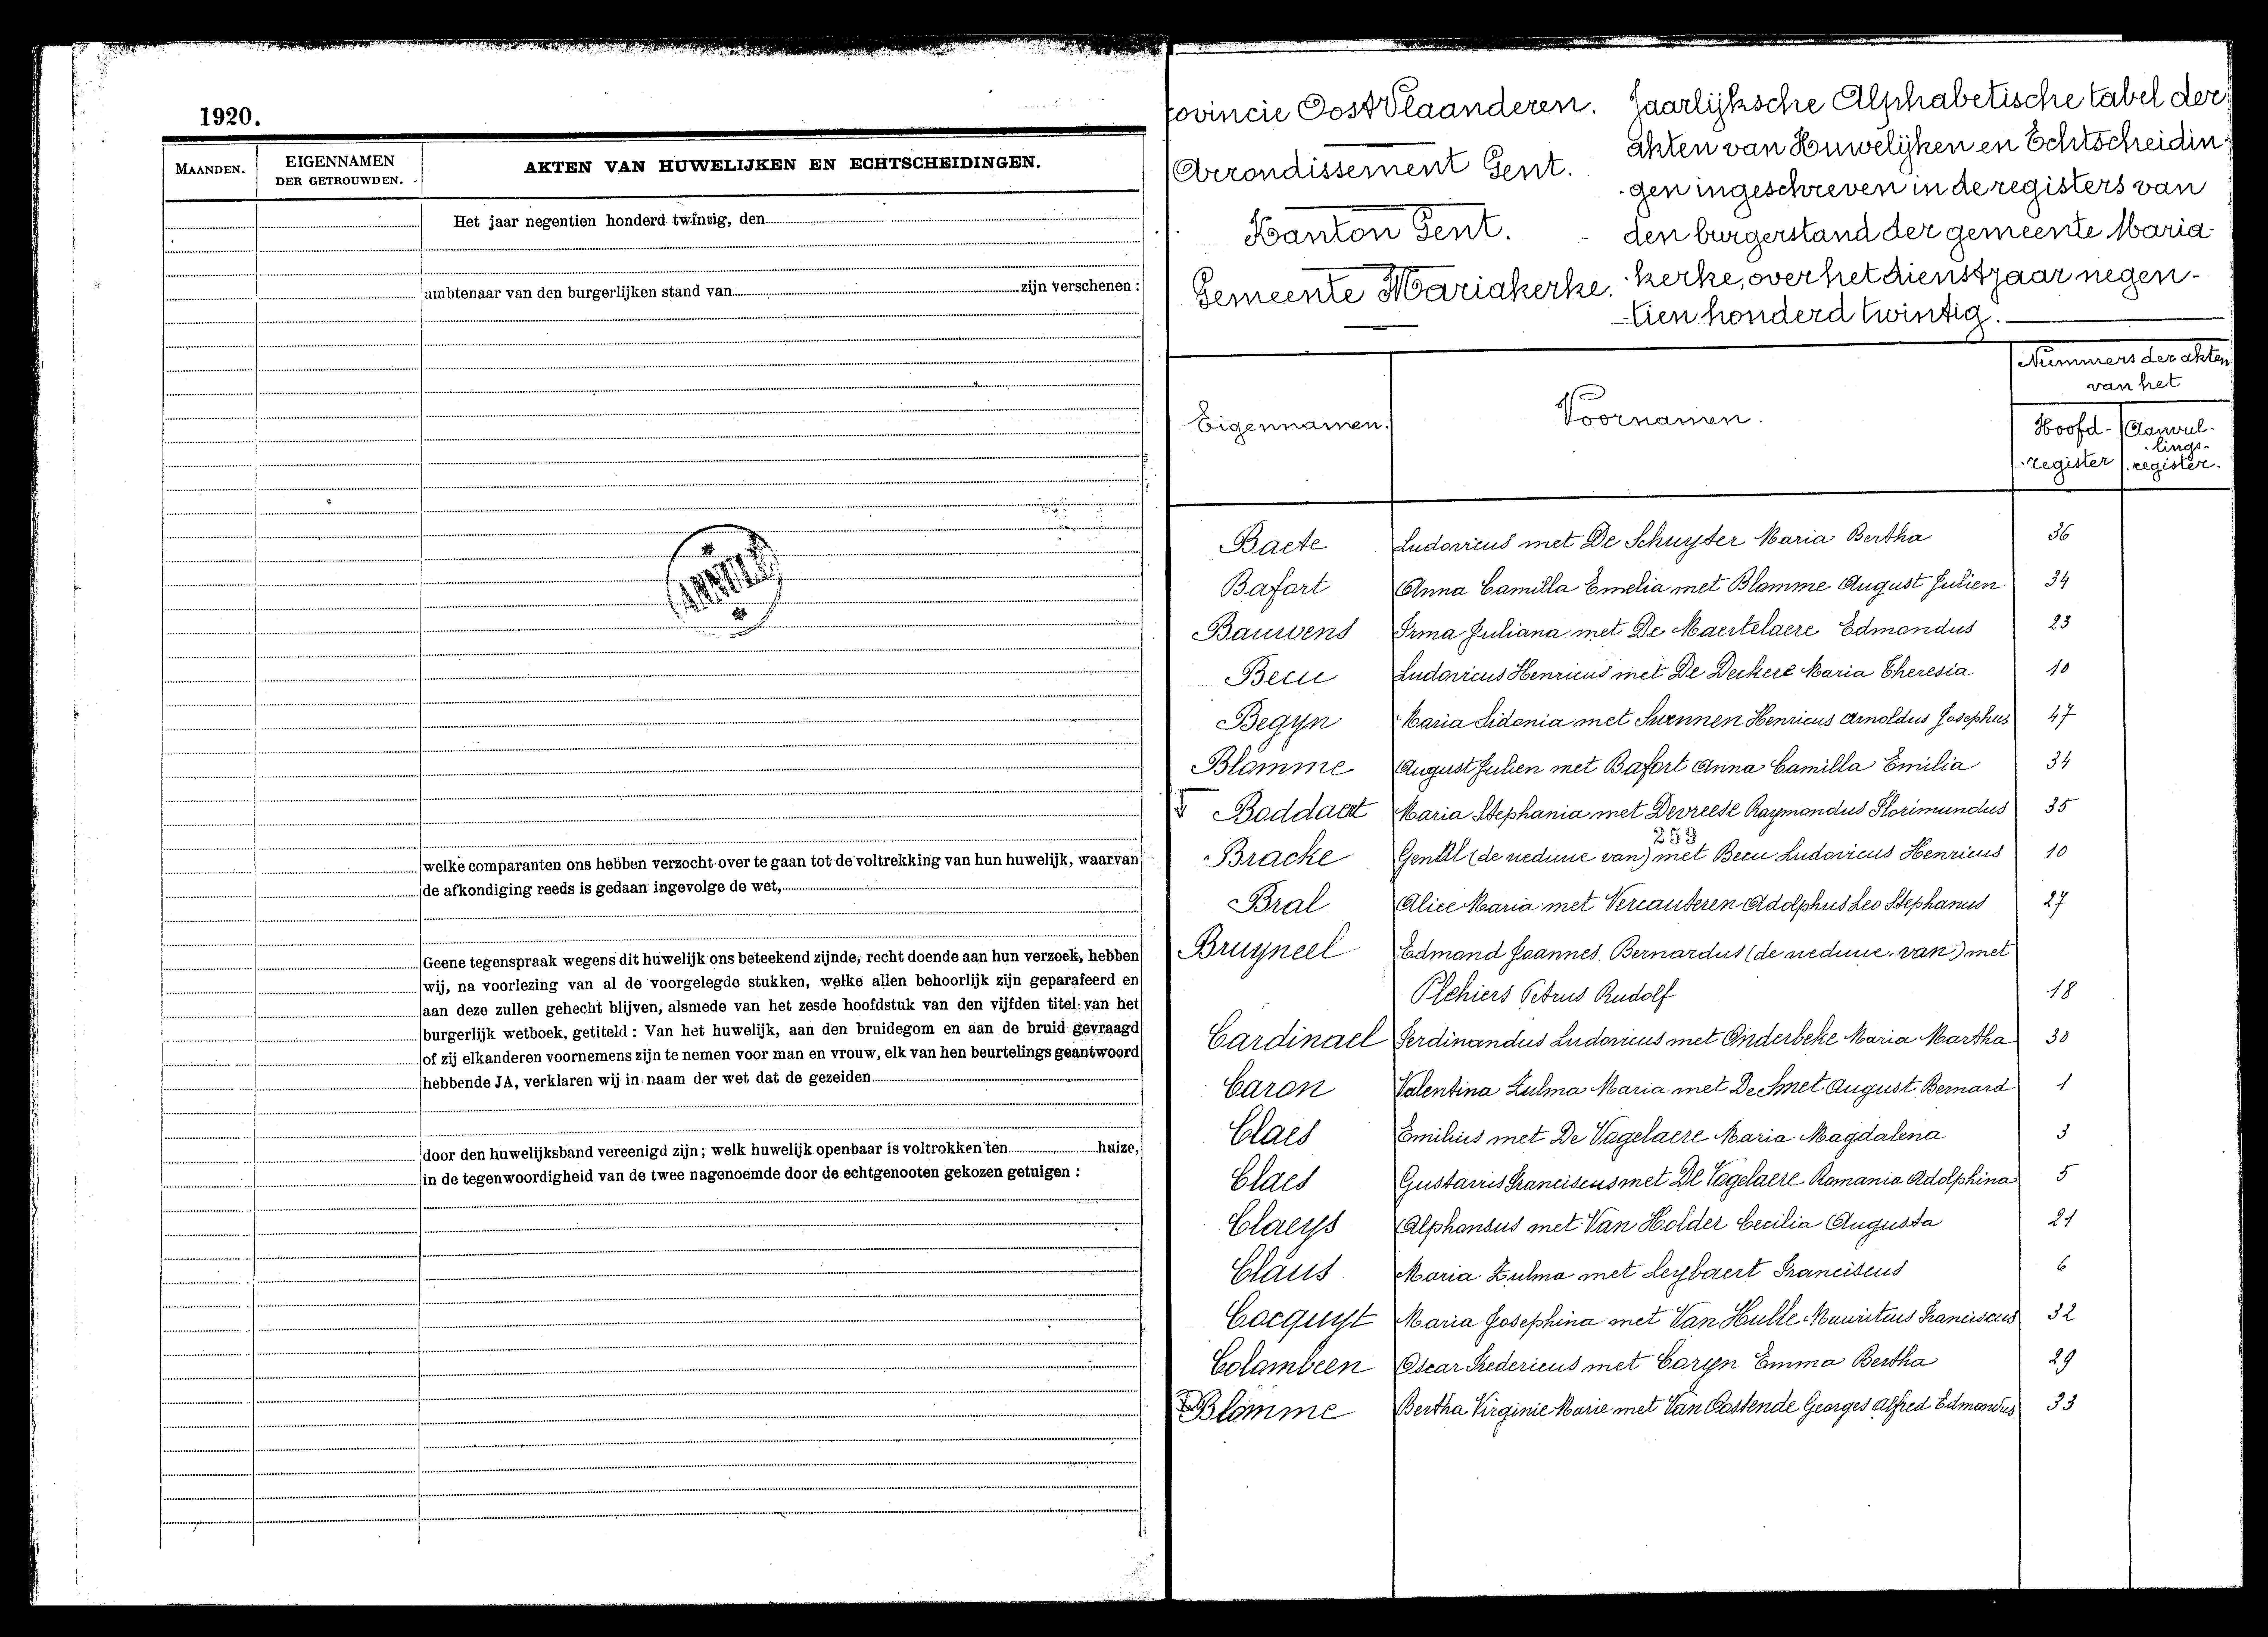 1920.
MAANDEN.
EIGENNAMEN
DER GETROUWDEN.
AKTEN VAN HUWELIJKEN EN ECHTSCHEIDINGEN.
Het jaar negentien honderd twintig, den
ambtenaar van den burgerlijken stand van zijn verschenen :
welke comparanten ons hebben verzocht over te gaan tot de voltrekking van hun huwelijk, waarvan
de afkondiging reeds is gedaan ingevolge de wet,
Geene tegenspraak wegens dit huwelijk ons beteekend zijnde, recht doende aan hun verzoek, hebben
wij, na voorlezing van al de voorgelegde stukken, welke allen behoorlijk zijn geparafeerd en
aan deze zullen gehecht blijven, alsmede van het zesde hoofdstuk van den vijfden titel van het
burgerlijk wetboek, getiteld : Van het huwelijk, aan den bruidegom en aan de bruid gevraagd
of zij elkanderen voornemens zijn te nemen voor man en vrouw, elk van hen beurtelings geantwoord
hebbende JA, verklaren wij in naam der wet dat de gezeiden
door den huwelijksband vereenigd zijn; welk huwelijk openbaar is voltrokken ten huize,
in de tegenwoordigheid van de twee nagenoemde door de echtgenooten gekozen getuigen :
rovincie OostVlaanderen.
Arrondissement Gent.
Kanton Gent.
Gemeente Mariakerke.
Jaarlijksche Alphabetische tabel der
akten van Huwelijken en Echtscheidin-
-gen ingeschreven in de registers van
den burgerstand der gemeente Maria-
-kerke, over het dienstjaar negen-
-tien honderd twintig.
Eigennamen.
Voornamen.
Nummers der akten
van het
Hoofd-
register
Aanvul-
lings-
register.
Baete Ludovicus met De Schuyter Maria Bertha 36
Bafort Anna Camilla Emelia met Blomme August Julien 34
Bauwens Irma Juliana met De Maertelaere Edmondus 23
Becu Ludovicus Henricus met De Deckere Maria Theresia 10
Begyn Maria Sidonia met Suennen Henricus Arnoldus Josephus 47
Blomme August Julien met Bafort Anna Camilla Emilia 34
Boddaert Maria Stephania met Devreese Raymondus Florimundus 35
259
Bracke Gentil (de weduwe van) met Becu Ludovicus Henricus 10
Bral Alice Maria met Vercauteren Adolphus Leo Stephanus 27
Bruyneel Edmond Joannes Bernardus (de weduwe van) met
Plehiers Petrus Rudolf 18
Cardinael Ferdinandus Ludovicus met Onderbeke Maria Martha 30
Caron Valentina Zulma Maria met De Smet August Bernard 1
Claes Emilius met De Vogelaere Maria Magdalena 3
Claes Gustavus Franciscus met De Vogelaere Romania Adolphina 5
Claeys Alphonsus met Van Holder Cecilia Augusta 21
Claus Maria Zulma met Leybaert Franciscus 6
Cocquyt Maria Josephina met Van Hulle Mauritius Franciscus 32
Colambeen Oscar Fredericus met Caryn Emma Bertha 29
Blomme Bertha Virginie Marie met Van Oostende Georges Alfred Edmondus 33